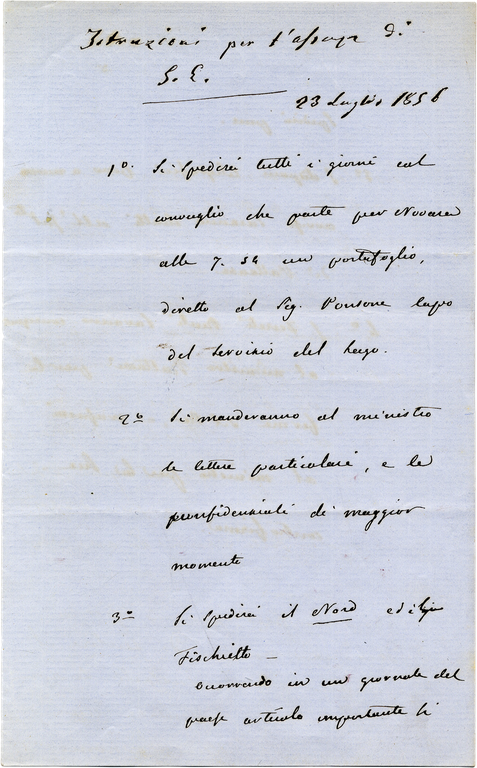 Istruzioni per l'assenza di
S. E.
23 Luglio 1856
1º. Si spedirà tutti i giorni col
convoglio che parte per Novara
alle 7. 50 un portafoglio,
diretto al Sig. Ponsone Capo
del Servizio del Lago.
2º Si manderanno al ministro
le lettere particolari, e le
confidenziali di maggior
momento
3º Si spedirà il Nord ed il
Fischietto —
occorrendo in un giornale del
paese articolo importante si